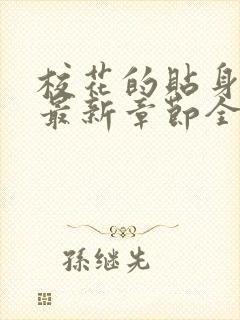 校花的贴身
最新章节全
孫继先